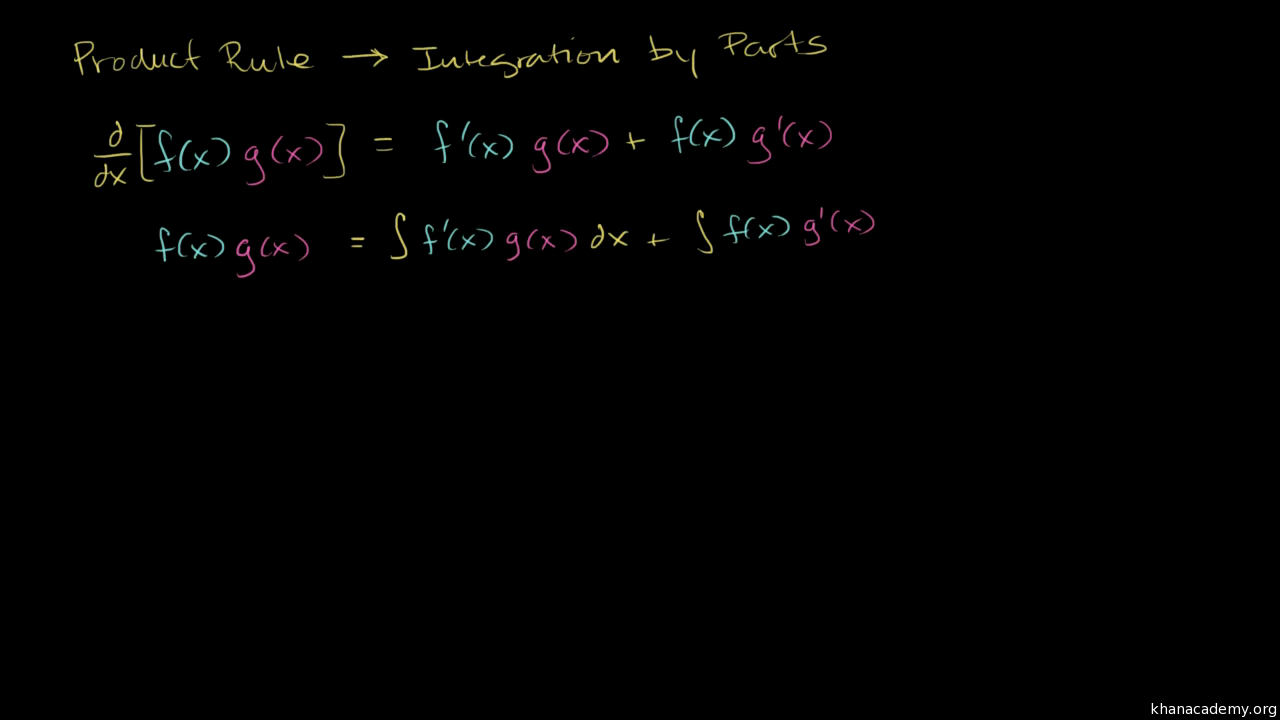 Product Rule → Integration by Parts
d/dx [f(x) g(x)] = f'(x) g(x) + f(x) g'(x)
f(x) g(x) = ∫ f'(x) g(x) dx + ∫ f(x) g'(x)
khanacademy.org